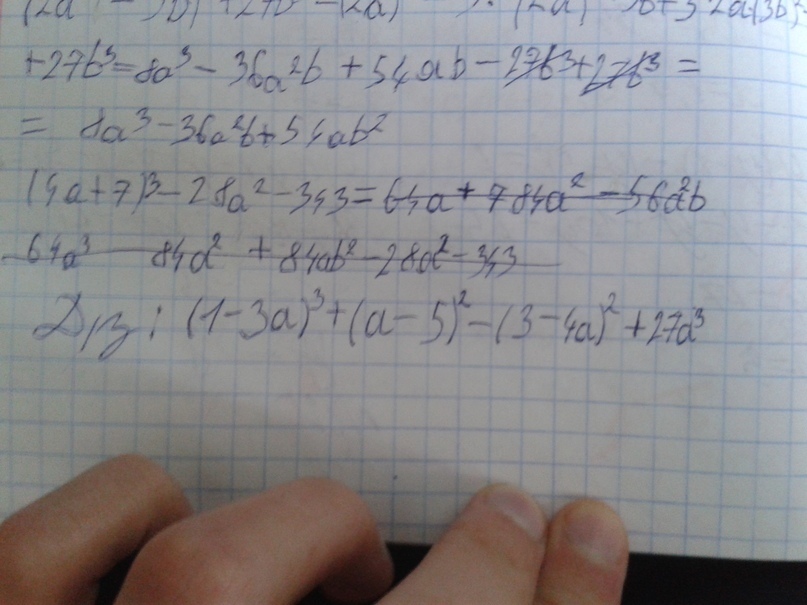 (2a - 3b) + 27b - (2a) - 3 · (2a) 3b + 3 · 2a · (3b)
+27b³ = 8a³ - 36a²b + 54ab - 27b³ + 27b³ =
= 8a³ - 36a²b + 54ab²
(4a + 7)³ - 28a² - 343 = 64a + 784a² - 56a²b
64a³ 84a² + 84ab² - 28a² - 343
Д/з: (1 - 3a)³ + (a - 5)² - (3 - 4a)² + 27a³